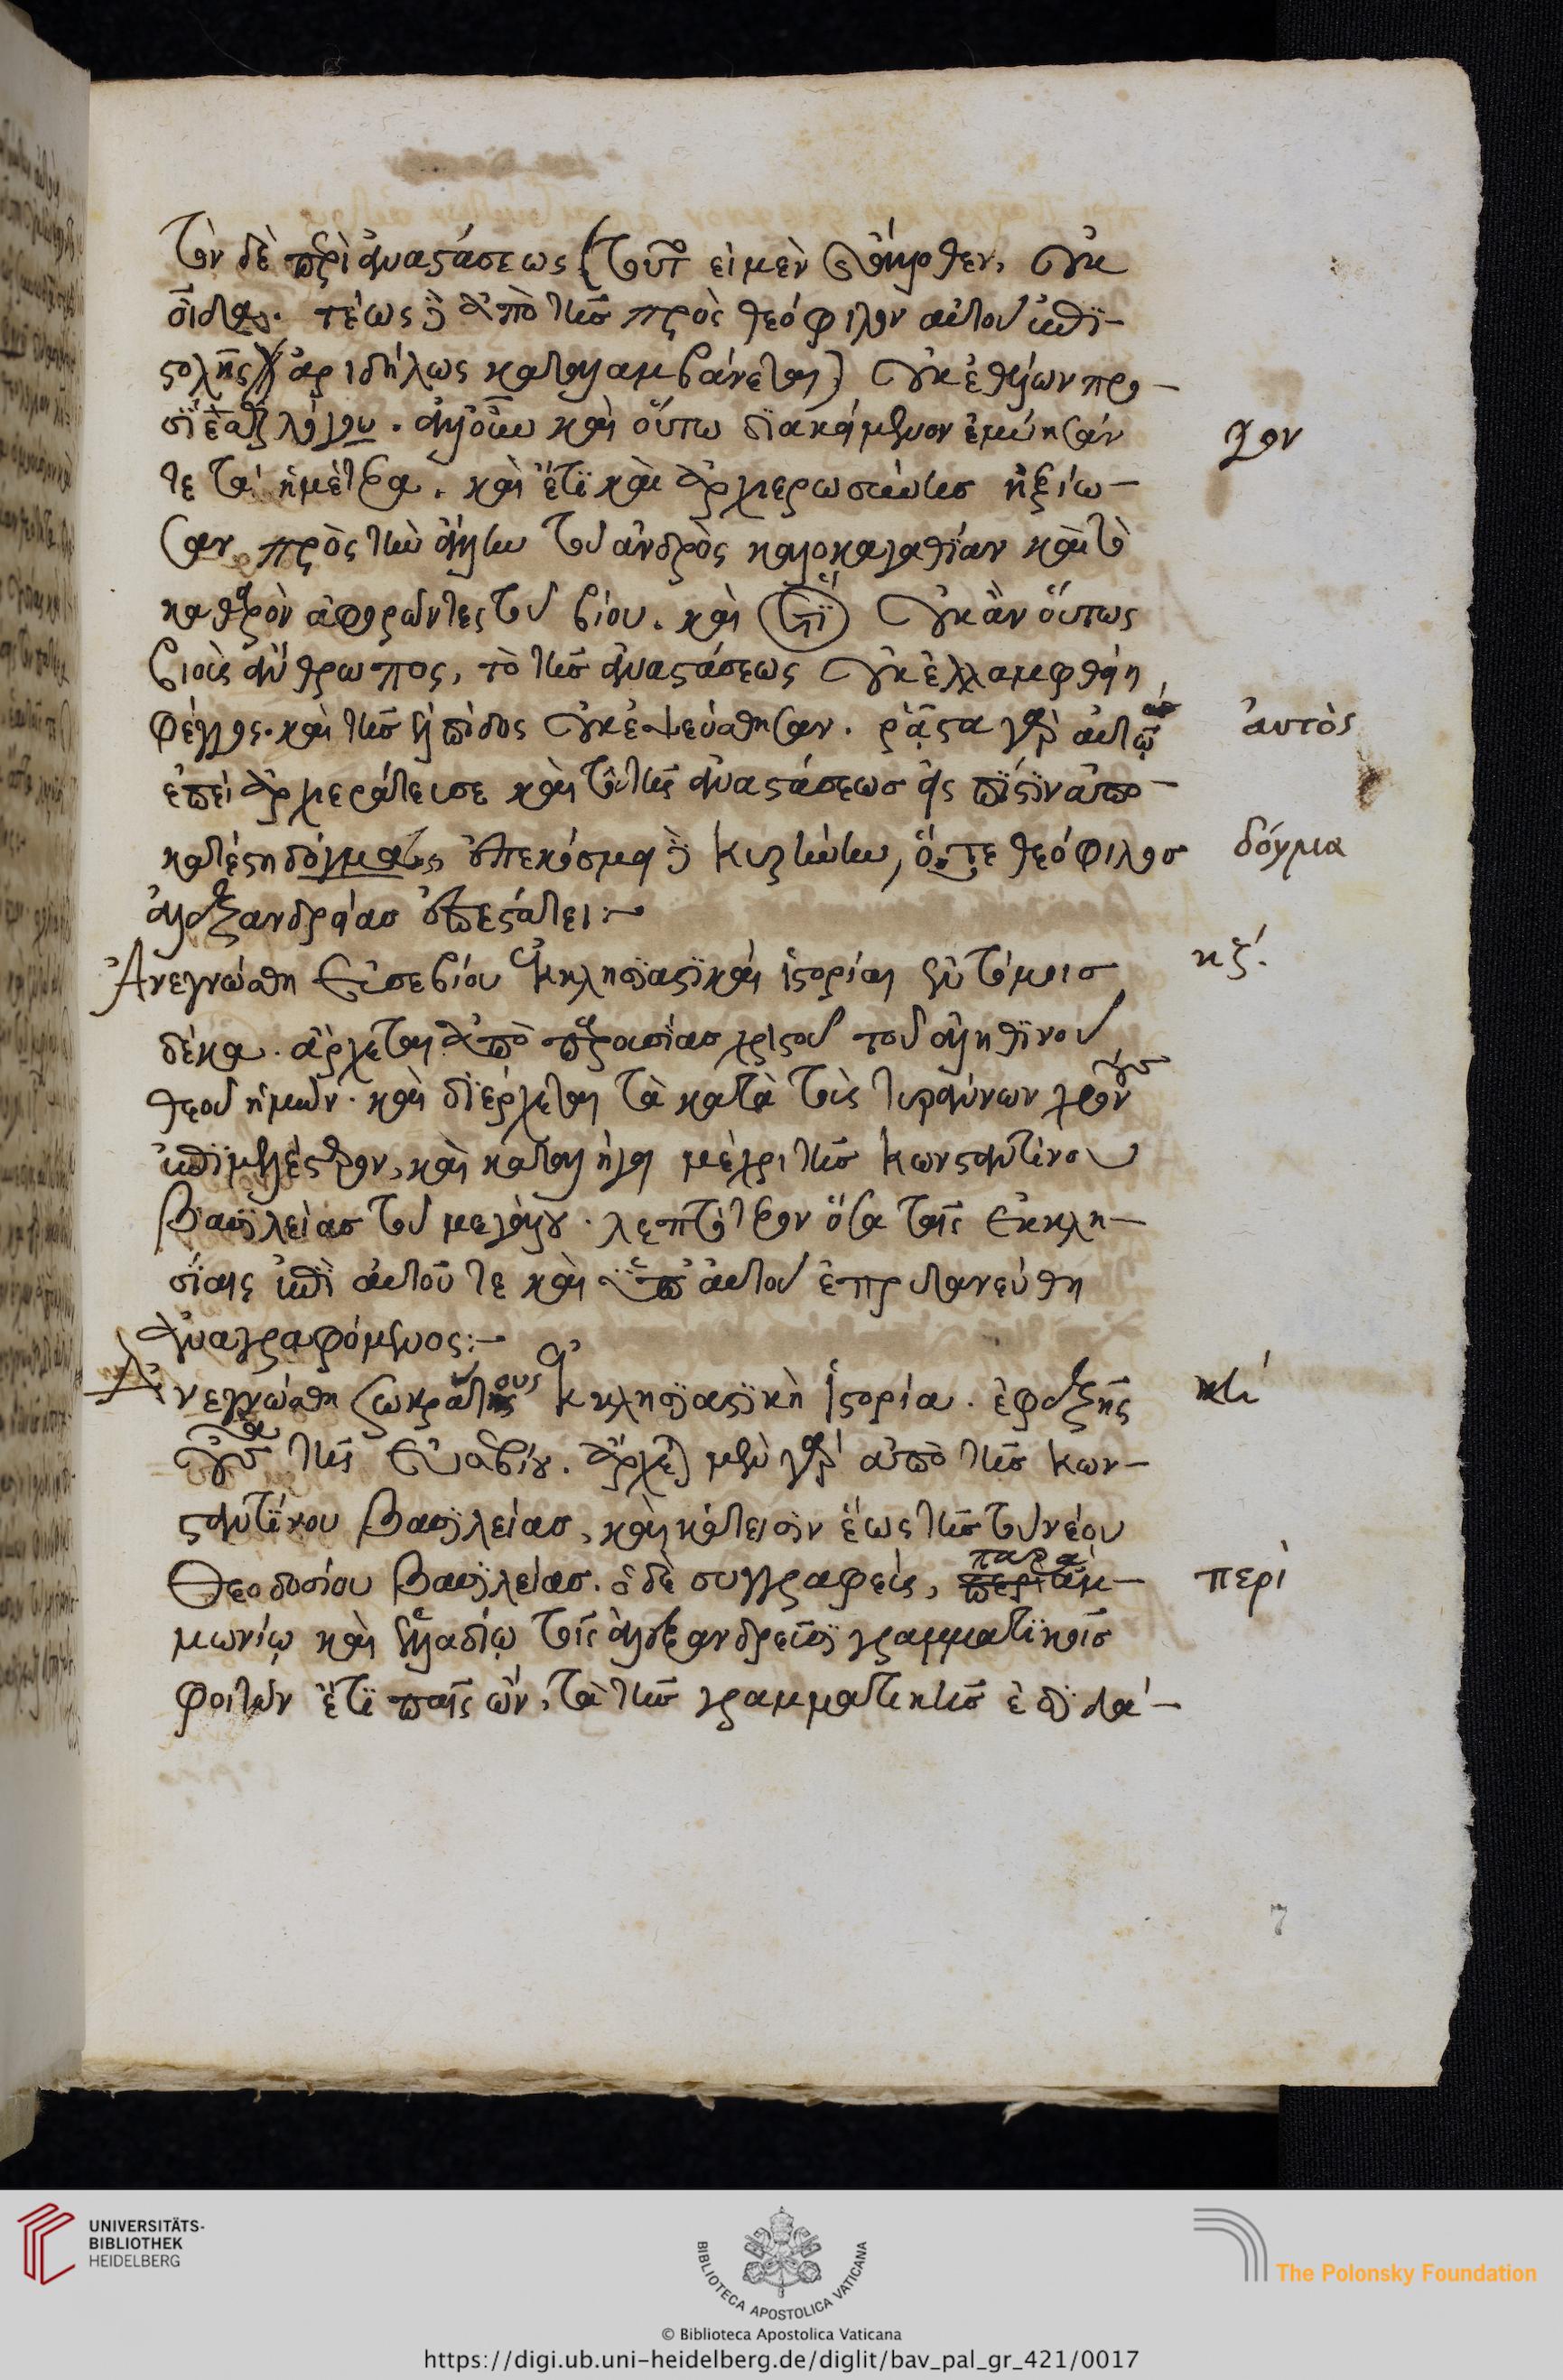 τὸν δὲ περὶ ἀναστάσεως (τοῦτο εἰ μὲν ἄνωθεν, οὐκ
οἶδα. τέως δὲ ἀπὸ τῆς πρὸς θεόφιλον αὐτοῦ ἐπι-
στολῆς ἀριδήλως καταλαμβάνεται) οὐκ ἐθέλων προ-
σίεσθαι λόγον. ἀλλ' οὖν καὶ οὕτω διακείμενον ἐμύησάν
χον
τε τὰ ἡμέτερα. καὶ ἔτι καὶ ἀρχιερωσύνης ἠξίω-
σαν πρὸς τὴν ἄλλην τοῦ ἀνδρὸς καλοκαγαθίαν καὶ τὸ
καθαρὸν ἀφορῶντες τοῦ βίου. καὶ ὅτι οὐκ ἂν οὕτως
βιοὺς ἄνθρωπος, τὸ τῆς ἀναστάσεως οὐκ ἐλλαμφθείη
φέγγος. καὶ τῆς ἐλπίδος οὐκ ἐψεύσθησαν. ῥᾷστα γὰρ αὐτῷ
ἀυτὸς
ἐπεὶ ἀρχιεράτευσε καὶ τὸ τῆς ἀναστάσεως εἰς πίστιν ἀπο-
κατέστη δόγματος ἐπεκόσμει δὲ κυρήνην, ὅτε θεόφιλος
δόγμα
ἀλεξανδρείας ἐπεστάτει:-
Ἀνεγνώσθη Εὐσεβίου ἐκκλησιαστικαὶ ἱστορίαι ἐν τόμοις
κζ΄.
δέκα. ἄρχεται ἀπὸ παρουσίας χριστοῦ τοῦ ἀληθινοῦ
θεοῦ ἡμῶν. καὶ διέρχεται τὰ κατὰ τοὺς τυράννων χρόνους
ἐπιμελέστερον, καὶ καταλήγει μέχρι τῆς κωνσταντίνου
Βασιλείας τοῦ μεγάλου. λεπτότερον ὅσα ταῖς ἐκκλη-
σίαις ἐπὶ αὐτοῦ τε καὶ ὑπ' αὐτοῦ ἐπρυτανεύθη
ἀναγραφόμενος:-
Ἀνεγνώσθη Σωκράτους ἐκκλησιαστικὴ ἱστορία. ἐφεξῆς
κη΄
οὖσα τῆς Εὐσεβίου. ἄρχεται μὲν γὰρ ἀπὸ τῆς κων-
σταντίνου Βασιλείας, καὶ κάτεισιν ἕως τῆς τοῦ νέου
Θεοδοσίου Βασιλείας. ὁ δὲ συγγραφεὺς, παρὰ ἀμ-
περὶ
μωνίῳ καὶ ἑλλαδίῳ τοῖς ἀλεξανδρεῦσι γραμματικοῖς
φοιτῶν ἔτι παῖς ὤν, τὰ τῆς γραμματικῆς ἐδιδά-
7
UNIVERSITÄTS-
BIBLIOTHEK
HEIDELBERG
BIBLIOTECA APOSTOLICA VATICANA
The Polonsky Foundation
© Biblioteca Apostolica Vaticana
https://digi.ub.uni-heidelberg.de/diglit/bav_pal_gr_421/0017